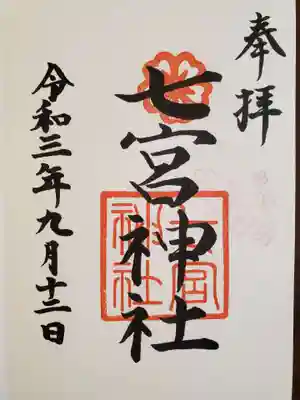 奉拝
七宮神社
七宮神社
令和三年九月十二日